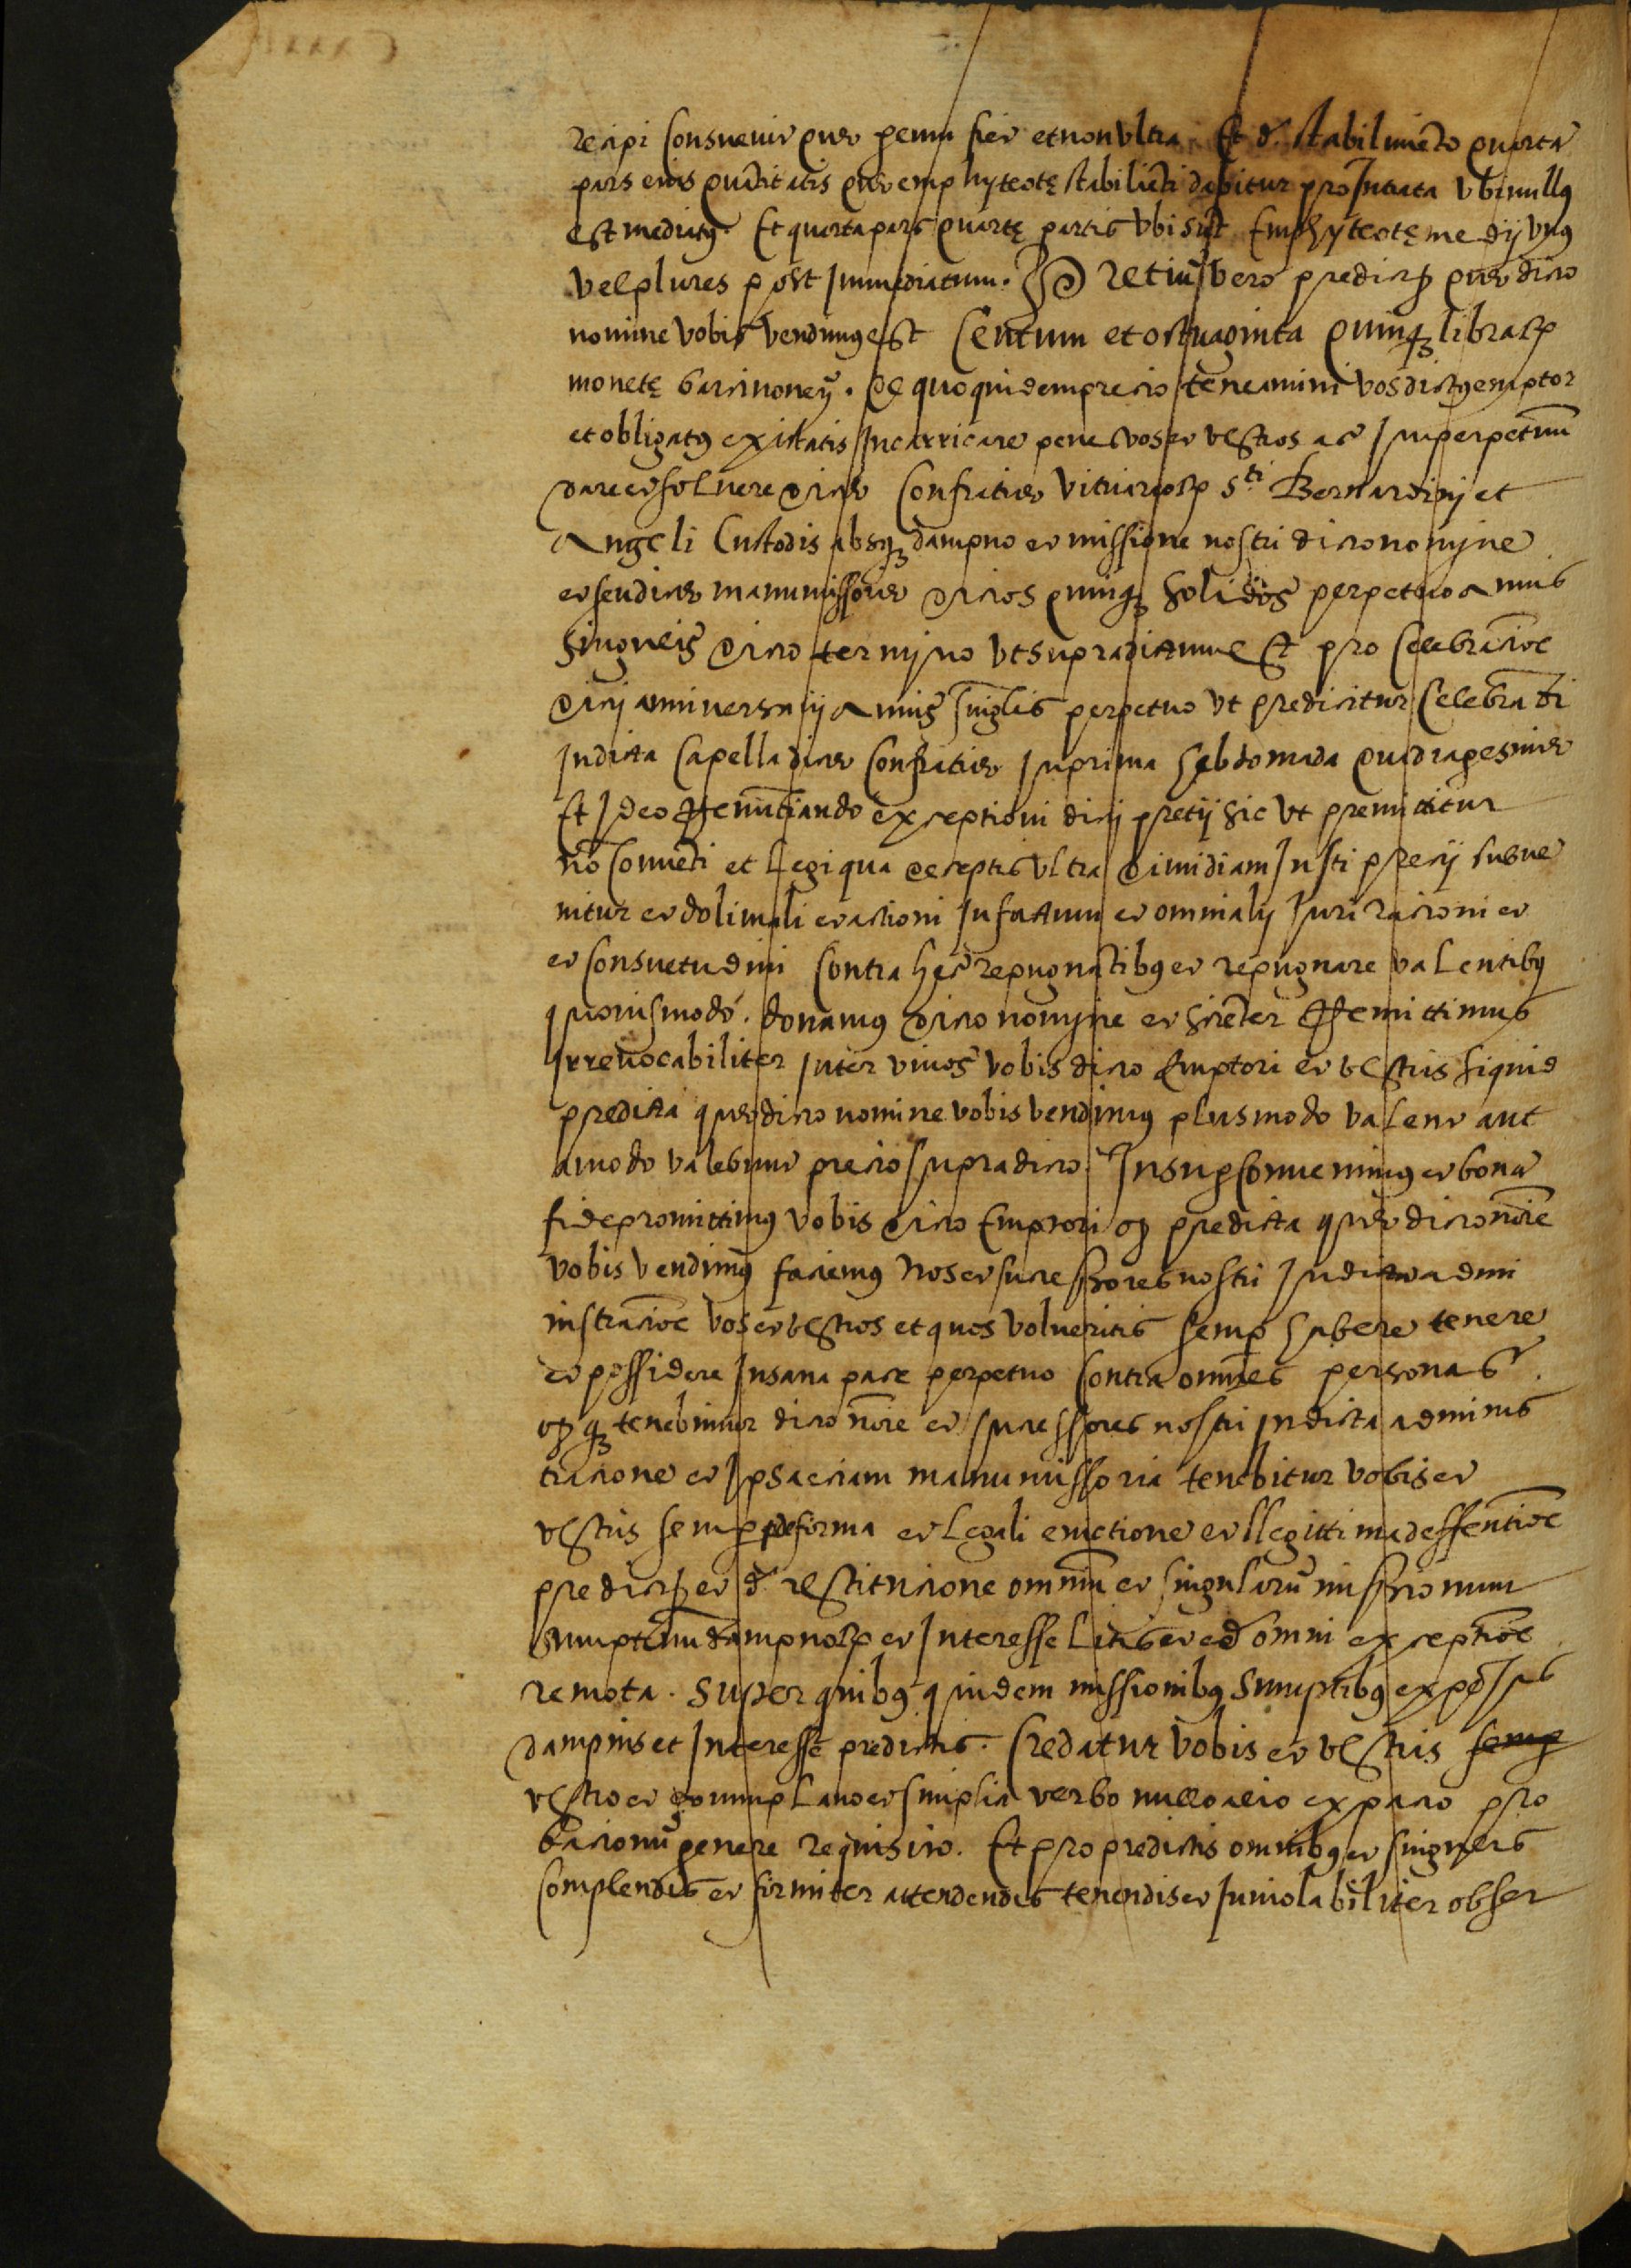 recipi Consuevit que penu fier et non ultra. Et d. stabilimēto quarta
pars eius quātitatis que emphyteotę stabiliēti dabitur pro Intrata Ubi nullus
est mediatus. Et quarta pars quartę partis Ubi sūt Emphyteotę medij Unus
vel plures post Immediatum. Pretiū vero predictorum que dicto
nomine vobis vendimus est Centum et octuaginta quinque librarum
monetę barcinonen̄. De quo quidem precio teneamini vos dictus emptor
et obligatus existatis Incarricare penes vos et vestros ac Imperpetuum
dare et solvere dicte Confratrie vitrariorum Sti Bernardini et
Angeli Custodis absque dampno et missione nostri dicto nomine
et seu dicte manumissorie dictos quinque solidos perpetuo annis
singulis dicto termino ut supradictum est pro Celebracioe
dicti anniversarij annis singlis perpetuo ut predicitur Celebrādi
In dicta Capella dicte Confratrie In prima hebdomada quadragesime
Et Ideo Renuntiando exceptioni dicti pretij sic ut premittitur
nō Conuēti et Legi qua deceptis ultra dimidiam Justi precij subve
nitur et doli mali et actioni In factum et omni alij Juri racioni et
et Consuetudini Contra hec repugnātibus et repugnare valentibus
quovismodo. donamus dicto nomine et scienter Remittimus
Irrevocabiliter Inter vivos vobis dicto Emptori et vestris siquid
predicta que dicto nomine vobis vendimus plus modo valent aut
amodo valebunt precio supradicto. Insuper Convenimus et bona
fide promittimus vobis dicto Emptori quod predicta que dicto noīe
vobis vendimus faciemus nos et successores nostri In dicta admi
nistracioe vos et vestros et quos volueritis semper habere tenere
et possidere In sana pace perpetuo Contra omnes personas.
quodque tenebimur dicto noīe et successores nostri In dicta adminis
tracione et Ipsa eciam manumissoria tenebitur vobis et
vestris semper de firma et Legali evictione et llegittima deffentioe
predictorum et d. restitucione omniū et singularū missionum
sumptuum dampnorum et Interesse Litis et ed omni exceptioe
remota. Super quibus quidem missionibus Sumptibus expēsis
dampnis et Interesse predictis. Credatur vobis et vestris semper
vestro et eorum plano et simplici verbo nullo alio expacto pro
bacionū genere requisito. Et pro predictis omnibus et singulis
Complendis et firmiter attendendis tenendis et Inviolabiliter obser